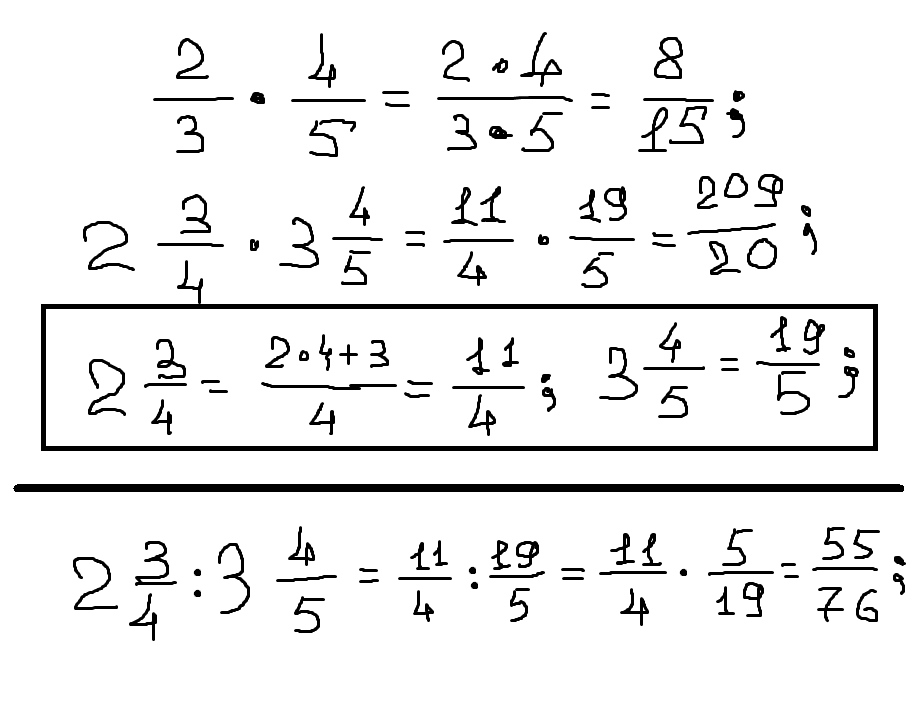 2/3 · 4/5 = 2·4/3·5 = 8/15;
2 3/4 · 3 4/5 = 11/4 · 19/5 = 209/20;
2 3/4 = 2·4+3/4 = 11/4; 3 4/5 = 19/5;
2 3/4 : 3 4/5 = 11/4 : 19/5 = 11/4 · 5/19 = 55/76;